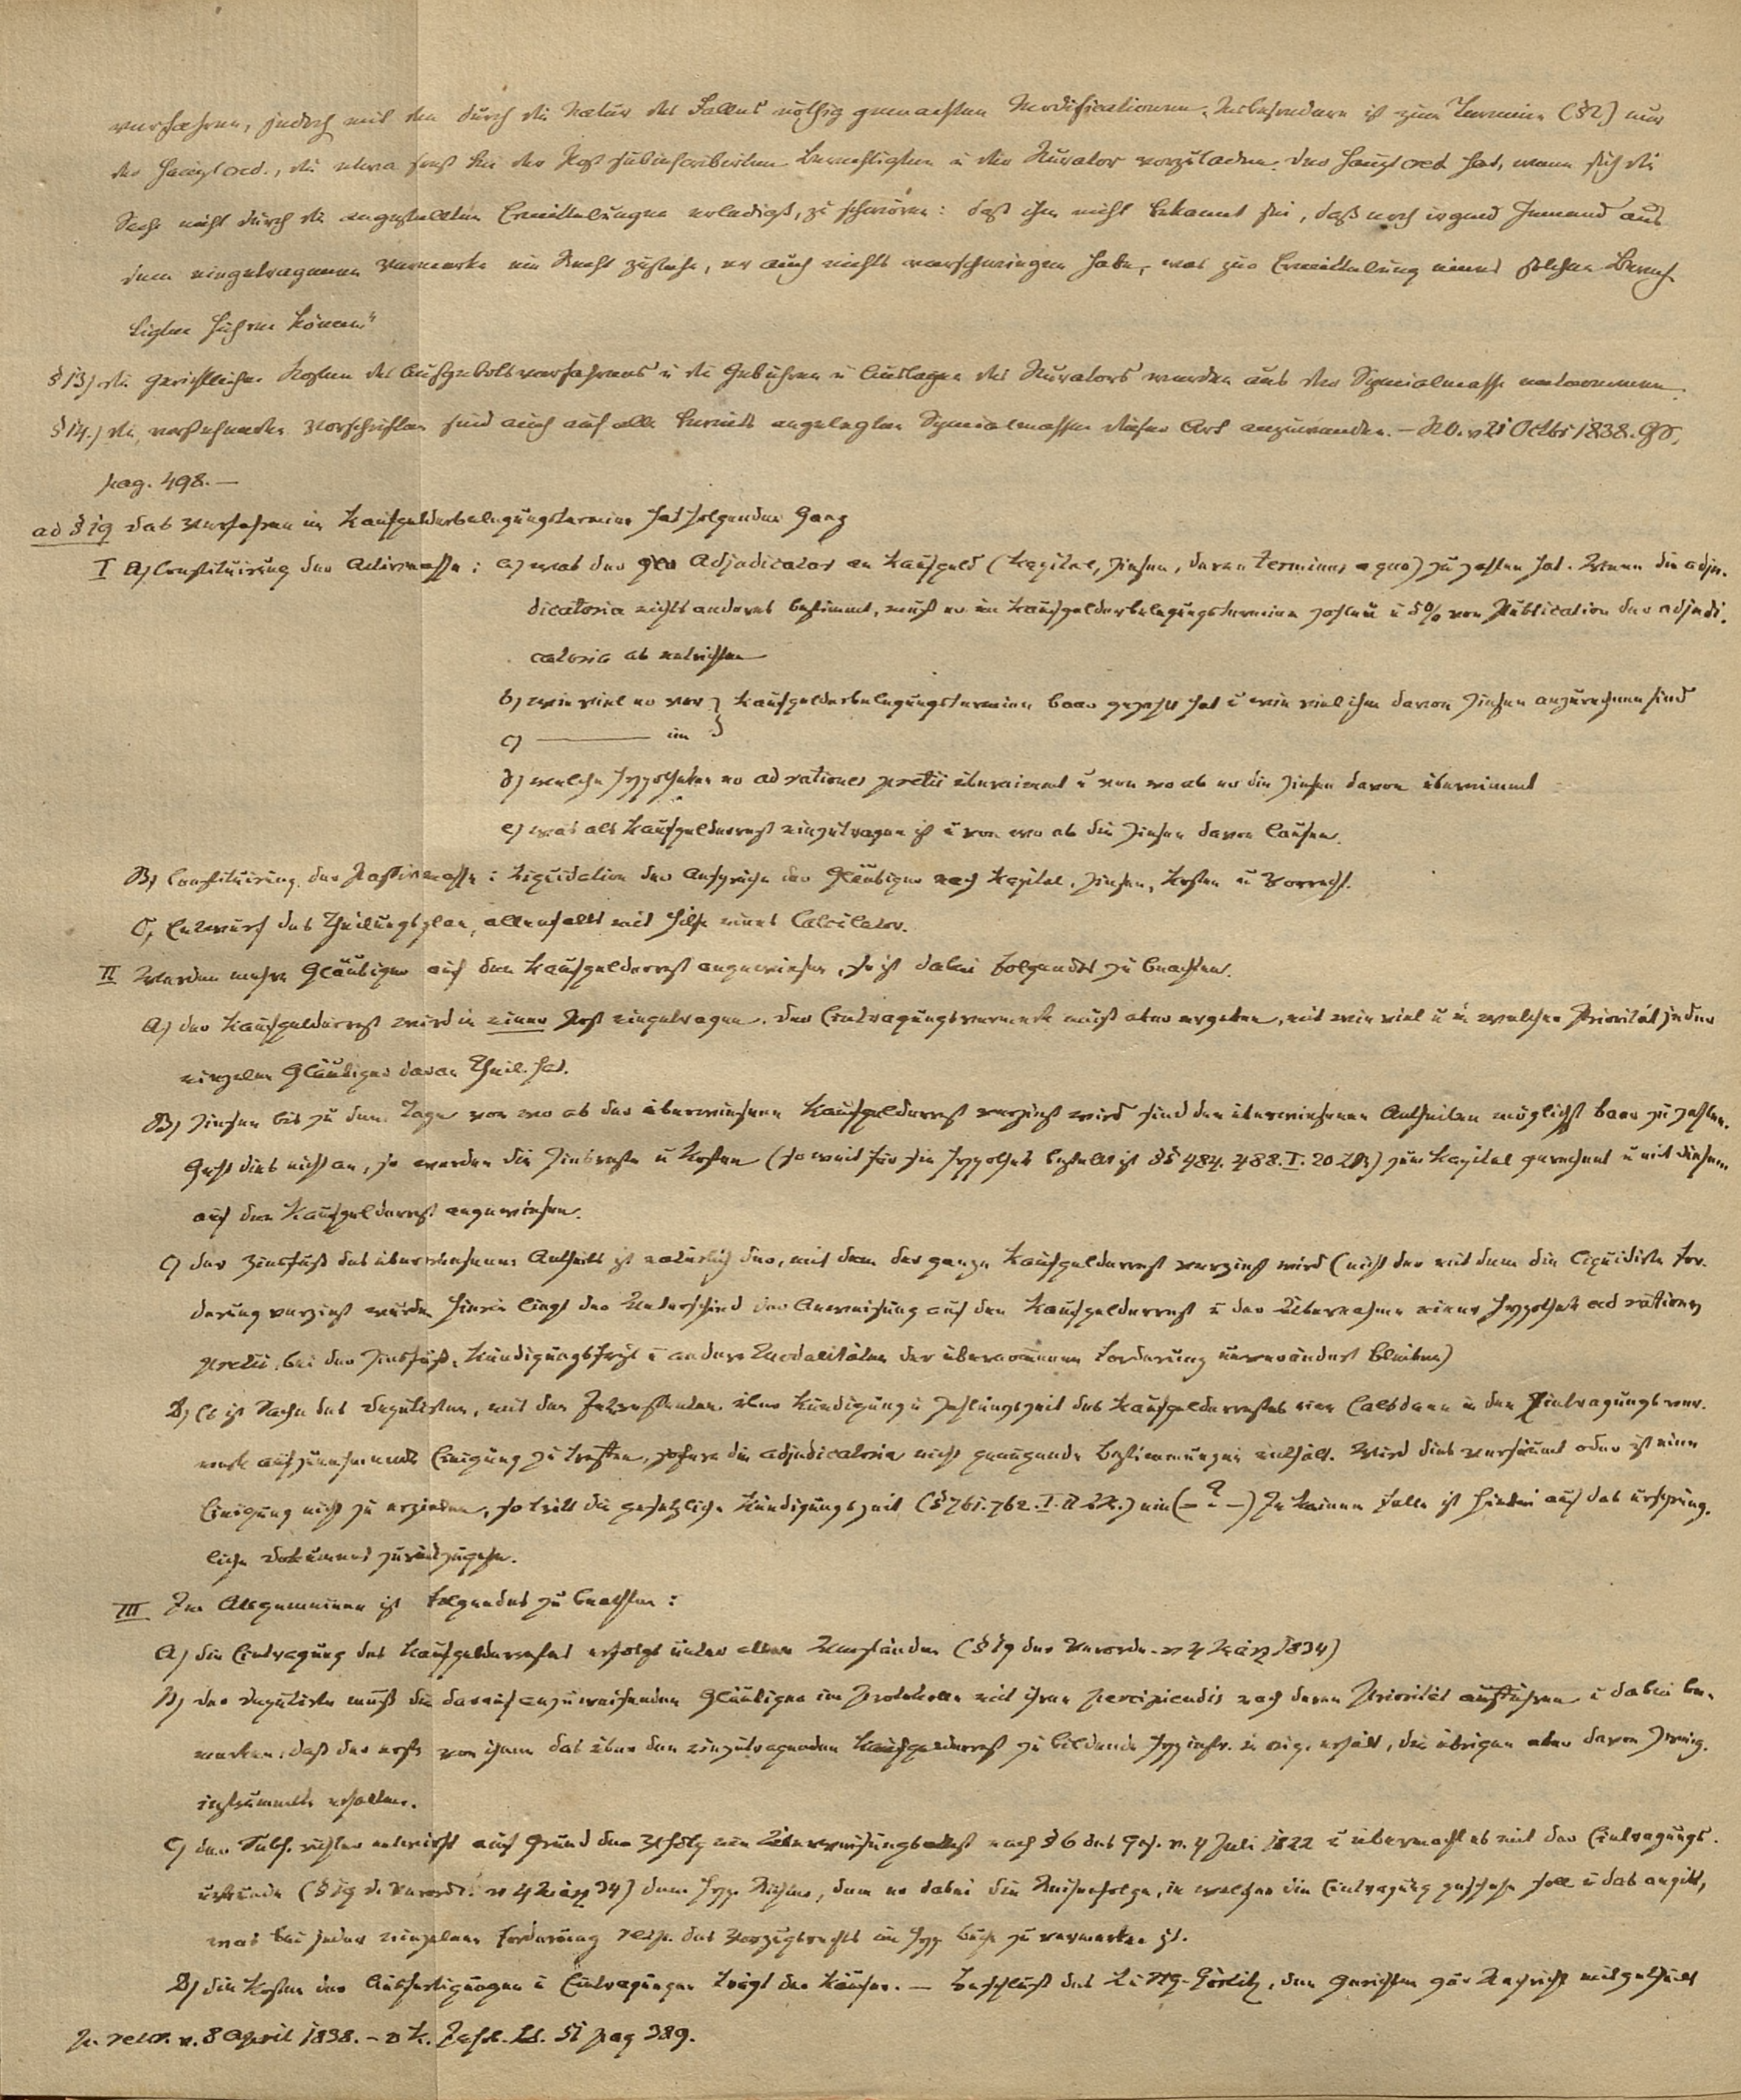 verfahren, jedoch mit den durch die Natur des Falles nöthig gemachten Modificationen. Insbesondere ist zum Termine (§2) nur
der Hauptcred., die etwa sonst bei der Post subinscribirten Berechtigten u der Kurator vorzuladen. Der Hauptcred. hat, wenn sich die
Sache nicht durch die angestellten Ermittelungen erledigt, zu schwören: daß ihm nicht bekannt sei, daß noch irgend Jemand aus
dem eingetragenen Vermerke ein Recht zustehe, er auch nichts verschwiegen habe, was zur Ermittelung eines solchen Berech-
tigten führen könne."
§13) die gerichtlichen Kosten des Aufgebotsverfahrens u die Gebühren u Auslagen des Kurators werden aus der Specialmasse entnommen.
§14.) die vorstehenden Vorschriften sind auch auf alle bereits angelegten Specialmassen dieser Art anzuwenden. – KO. v 21 Octbr 1838. GS,
pag. 498. –
ad §19 das Verfahren im Kaufgelderbelegungstermine hat folgenden Gang
I A) Constituirung der Activmasse: a) was der Adjudicatar an Kaufgeld (Kapital, Zinsen, deren terminus a quo) zu zahlen hat. Wenn die adju-
dicatoria nichts anderes bestimmt, muß er im Kaufgelderbelegungstermine zahlen u 5% von Publication der adjudi-
catoria ab entrichten
b) wie viel er vor } Kaufgelderbelegungstermine baar gezahlt hat u wie viel ihm davon Zinsen anzurechnen sind
c) ——— im }
d) welche Hypotheken er ad rationes pretii übernimmt u von wo ab er die Zinsen davon übernimmt
e) was als Kaufgelderrest einzutragen ist u von wo ab die Zinsen davon laufen.
B) Constituirung der Passivmasse: Liquidation der Ansprüche der Gläubiger nach Kapital, Zinsen, Kosten u Vorrecht.
C, Entwurf des Theilungsplan, allenfalls mit Hilfe eines Calculator.
II Werden mehre Gläubiger auf den Kaufgelderrest angewiesen, so ist dabei Folgendes zu beachten.
A) der Kaufgelderrest wird in einer Post eingetragen. Der Eintragungsvermerk muß aber ergeben, mit wie viel u in welcher Priorität jeder
einzelne Gläubiger daran Theil hat.
B) Zinsen bis zu dem Tage von wo ab der überwiesene Kaufgelderrest verzinst wird sind den überwiesenen Antheilen möglichst baar zu zahlen.
Geht dies nicht an, so werden die Zinsreste u Kosten (so weit für sie Hypothek bestellt ist §§ 484. 488. I. 20 LR) zum Kapital gerechnet u mit diesem
auf den Kaufgelderrest angewiesen.
C) der Zinsfuß des überwiesenen Antheils ist natürlich der, mit dem der ganze Kaufgelderrest verzinst wird (nicht der mit dem die liquidirte For-
derung verzinst wurde. Hierin liegt der Unterschied der Anweisung auf den Kaufgelderrest u der Übernahme einer Hypothek ad rationes
pretii, bei der Zinsfuß, Kündigungsfrist u andere Modalitäten der übernommenen Forderung unverändert bleiben)
D) Es ist Sache des Deputirten, mit den Interessenten über Kündigung u Zahlungszeit des Kaufgelderrestes eine alsdann in den Eintragungsver-
merk aufzunehmende Einigung zu treffen, sofern die adjudicatoria nicht genügende Bestimmungen enthält. Wird dies versäumt oder ist eine
Einigung nicht zu erzielen, so tritt die gesetzliche Kündigungszeit (§ 761. 762. I. 11 LR.) ein (– ? –) In keinem Falle ist hierbei auf das ursprüng-
liche Dokument zurückzugehen.
III Im Allgemeinen ist Folgendes zu beachten:
A) die Eintragung des Kaufgelderrestes erfolgt unter allen Umständen (§19 der Verordn. v 4 März 1834)
B) der Deputirte muß die darauf anzuweisenden Gläubiger im Protokolle mit ihren percipiendis nach deren Priorität aufführen u dabei be-
merken: daß der erste von ihnen das über den einzutragenden Kaufgelderrest zu bildende Hyp instr. in orig. erhält, die übrigen aber davon Zweig-
instrumente erhalten.
C) der Subh. richter entwirft auf Grund der Erfolg ein Überweisungsattest nach § 6 des Ges. v. 4 Juli 1822 u übermacht es mit der Eintragungs-
urkunde (§19 d. Verord. v 4 März 34) dem Hyp. Richter, dem er dabei die Reihenfolge, in welcher die Eintragung geschehen soll u das angibt,
was bei jeder einzelnen Forderung resp. des Vorzugsrechts im Hyp. buche zu vermerken ist.
D) die Kosten der Ausfertigungen u Eintragungen trägt der Käufer. – Beschluß des Görlitz, den Gerichten zur Nachricht mitgetheilt
In rescr. v. 8 April 1838. – v K. Jahrb. Bd. 51 pag 389.